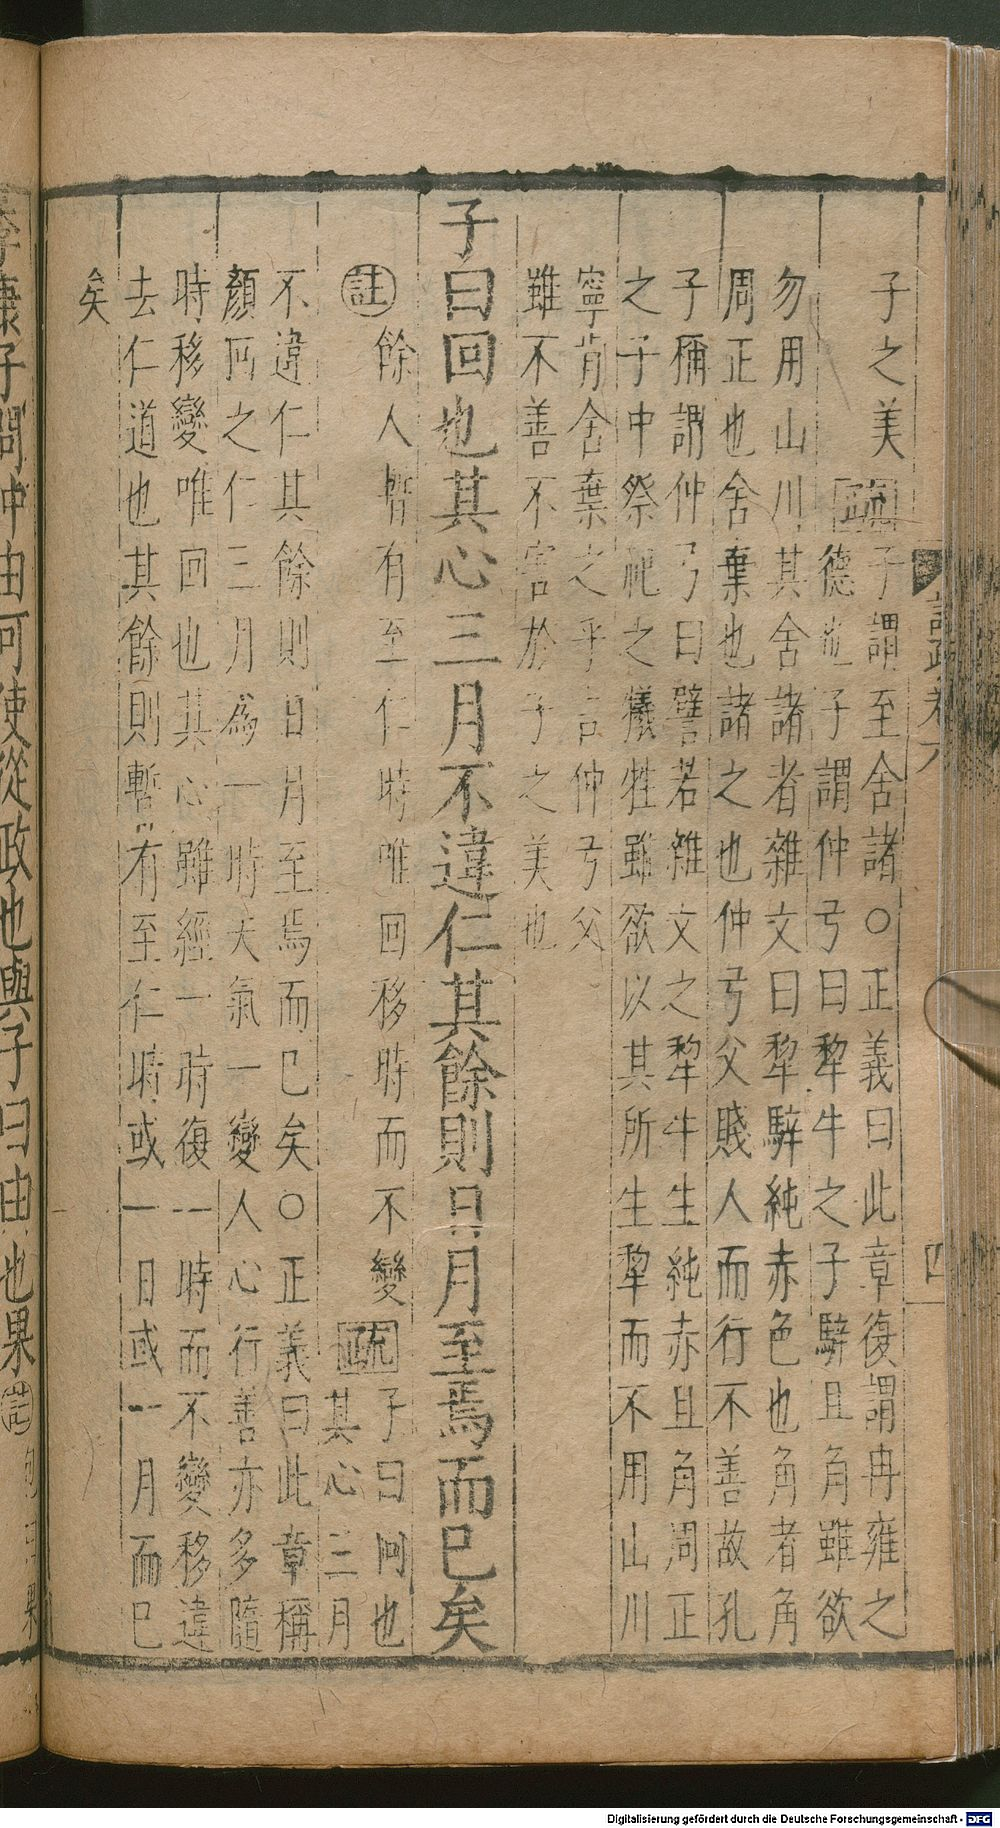 子之美疏子謂至舍諸○正義曰此章復謂冉雍之
德也子謂仲弓曰犂牛之子騂且角雖欲
勿用山川其舍諸者雜文曰犂騂純赤色也角者角
周正也舍棄也諸之也仲弓父賤人而行不善故孔
子稱謂仲弓曰譬若雜文之犂牛生純赤且角周正
之子中祭祀之犧牲雖欲以其所生犂而不用山川
寧肯舍棄之乎言仲弓父
雖不善不害於子之美也
子曰回也其心三月不違仁其餘則日月至焉而已矣
註餘人暫有至仁時唯回移時而不變疏子曰回也
其心三月
不違仁其餘則日月至焉而已矣○正義曰此章稱
顏回之仁三月爲一時天氣一變人心行善亦多隨
時移變唯回也其心雖經一時復一時而不變移違
去仁道也其餘則暫有至仁時或一日或一月而已
矣
四
季康子問仲由可使從政也與子曰由也果註
Digitalisierung gefördert durch die Deutsche Forschungsgemeinschaft - DFG